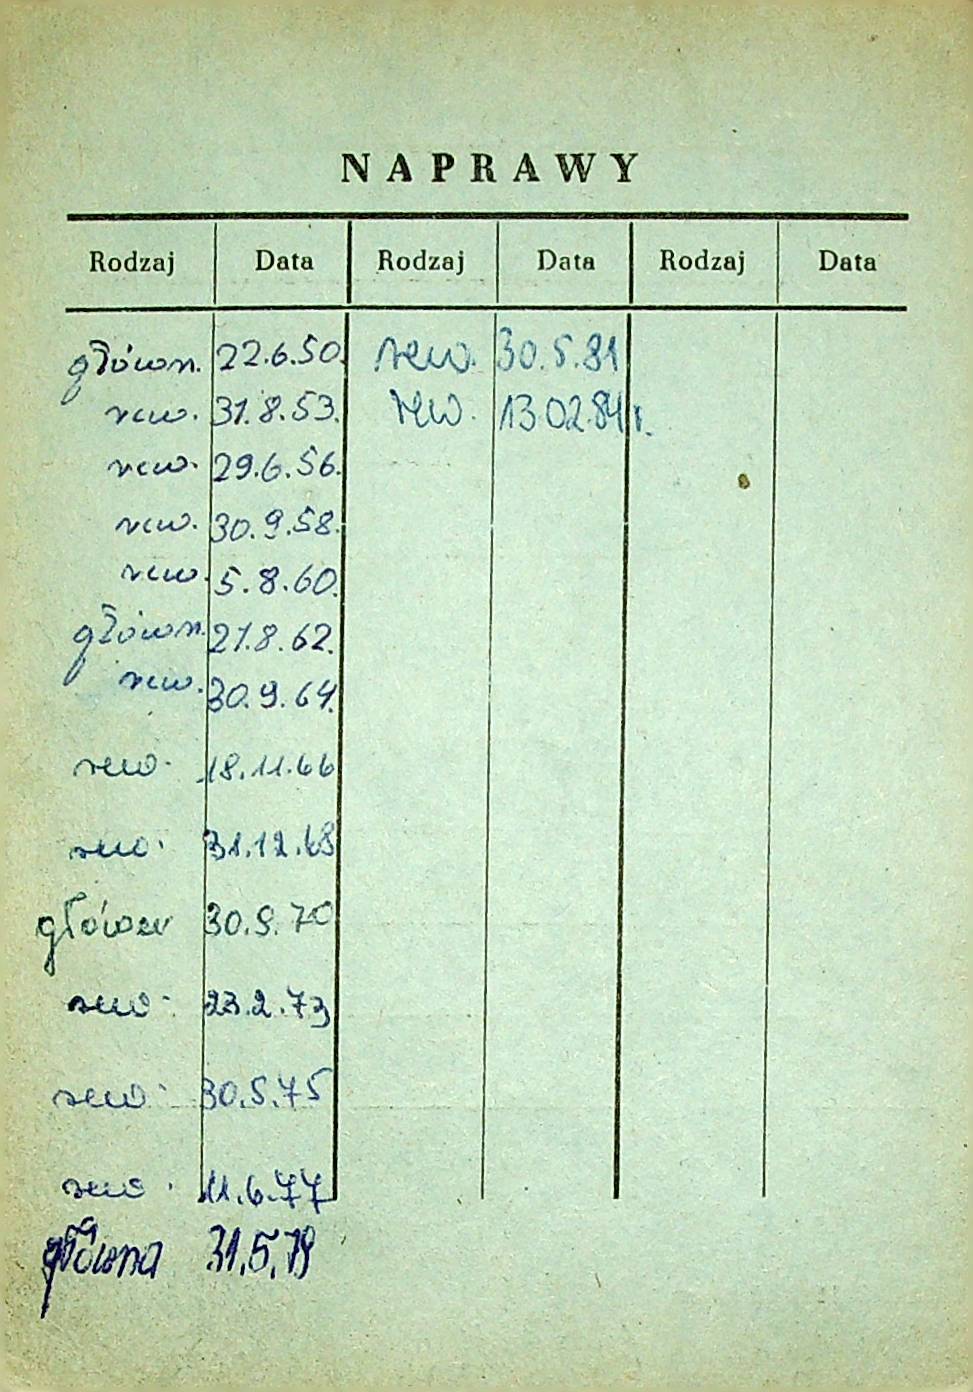 NAPRAWY
Rodzaj Data Rodzaj Data Rodzaj Data
główn. 22.6.50. rew. 30.5.81
rew. 31.8.53. rew. 13.02.84r.
rew. 29.6.56.
rew. 30.9.58.
rew. 5.8.60.
główn. 21.8.62.
rew. 30.9.64.
rew. 18.11.66
rew. 31.12.68
główn 30.9.70
rew. 23.2.73
rew. 30.5.75
rew. 11.6.77
główna 31.5.79